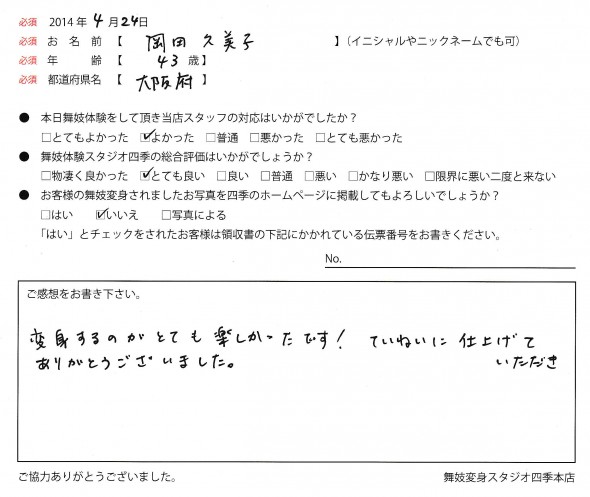 必須 2014年 4月24日
必須 お名前【 岡田久美子 】(イニシャルやニックネームでも可)
必須 年齢【 43歳】
必須 都道府県名【 大阪府 】
● 本日舞妓体験をして頂き当店スタッフの対応はいかがでしたか?
□とてもよかった ☑よかった □普通 □悪かった □とても悪かった
● 舞妓体験スタジオ四季の総合評価はいかがでしょうか?
□物凄く良かった ☑とても良い □良い □普通 □悪い □かなり悪い □限界に悪い二度と来ない
● お客様の舞妓変身されましたお写真を四季のホームページに掲載してもよろしいでしょうか?
□はい ☑いいえ □写真による
「はい」とチェックをされたお客様は領収書の下記にかかれている伝票番号をお書きください。
No.
ご感想をお書き下さい。
変身するのがとても楽しかったです! ていねいに仕上げて
いただき
ありがとうございました。
ご協力ありがとうございました。 舞妓変身スタジオ四季本店